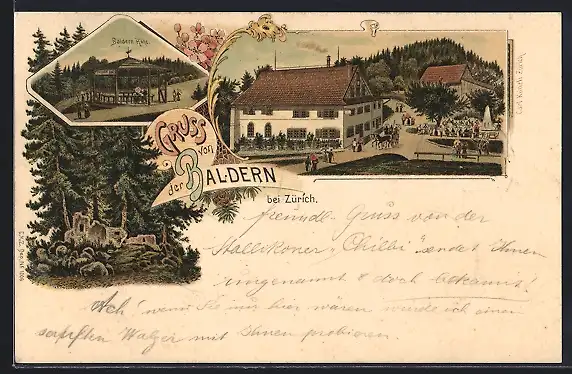 Baldern Klus.
GRUSS
von
der BALDERN
bei Zürich.
freundl. Gruss von der
Stallikoner „Chilbi“ sendet Ihnen
ungenannt & doch bekannt!
Ach! wenn Sie nur hier wären würde ich einen
sanften Walzer mit Ihnen probieren.
Carl Künzli, Zürich